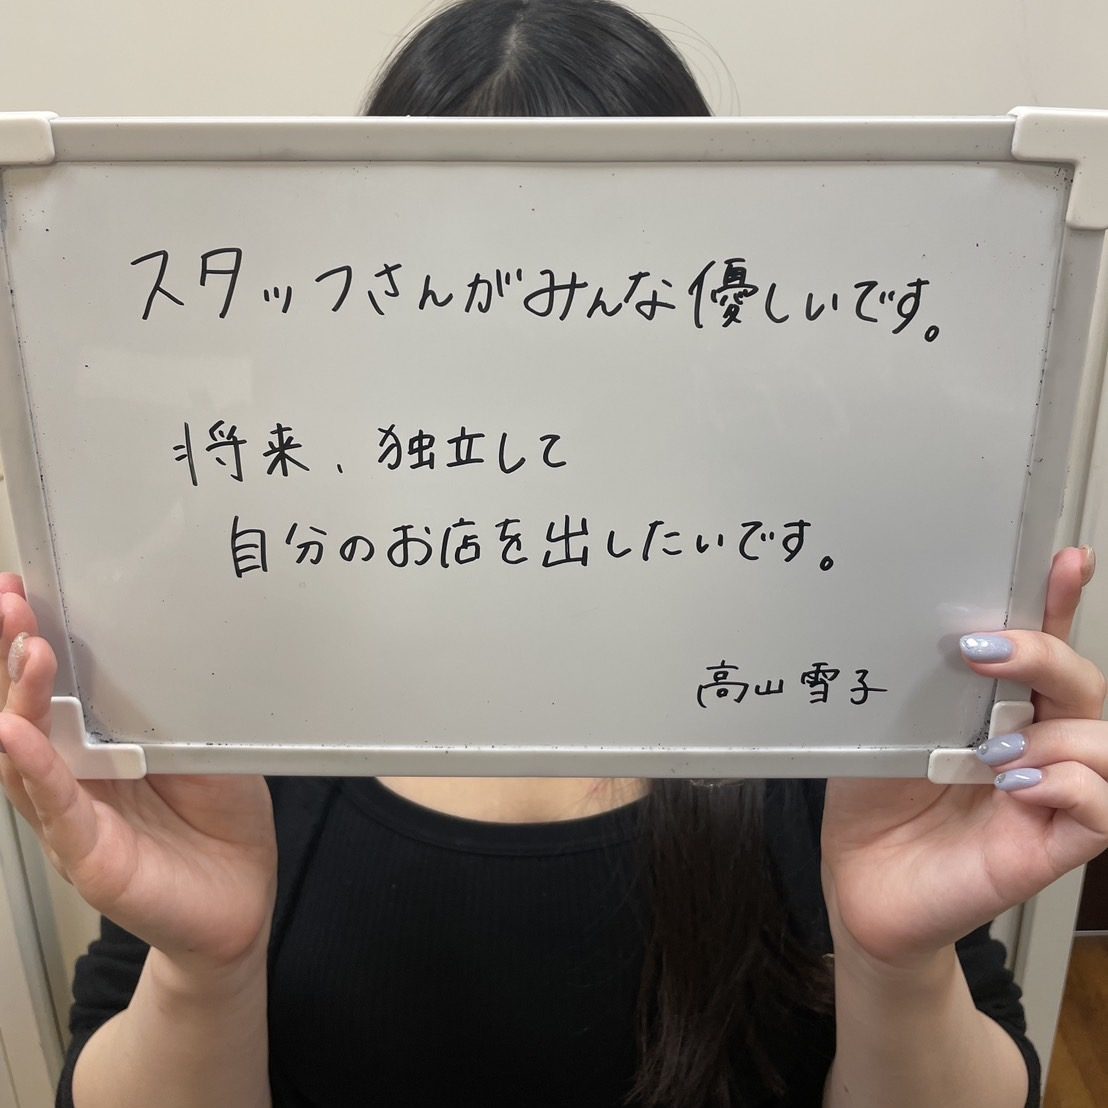 スタッフさんがみんな優しいです。
将来、独立して
自分のお店を出したいです。
高山雪子